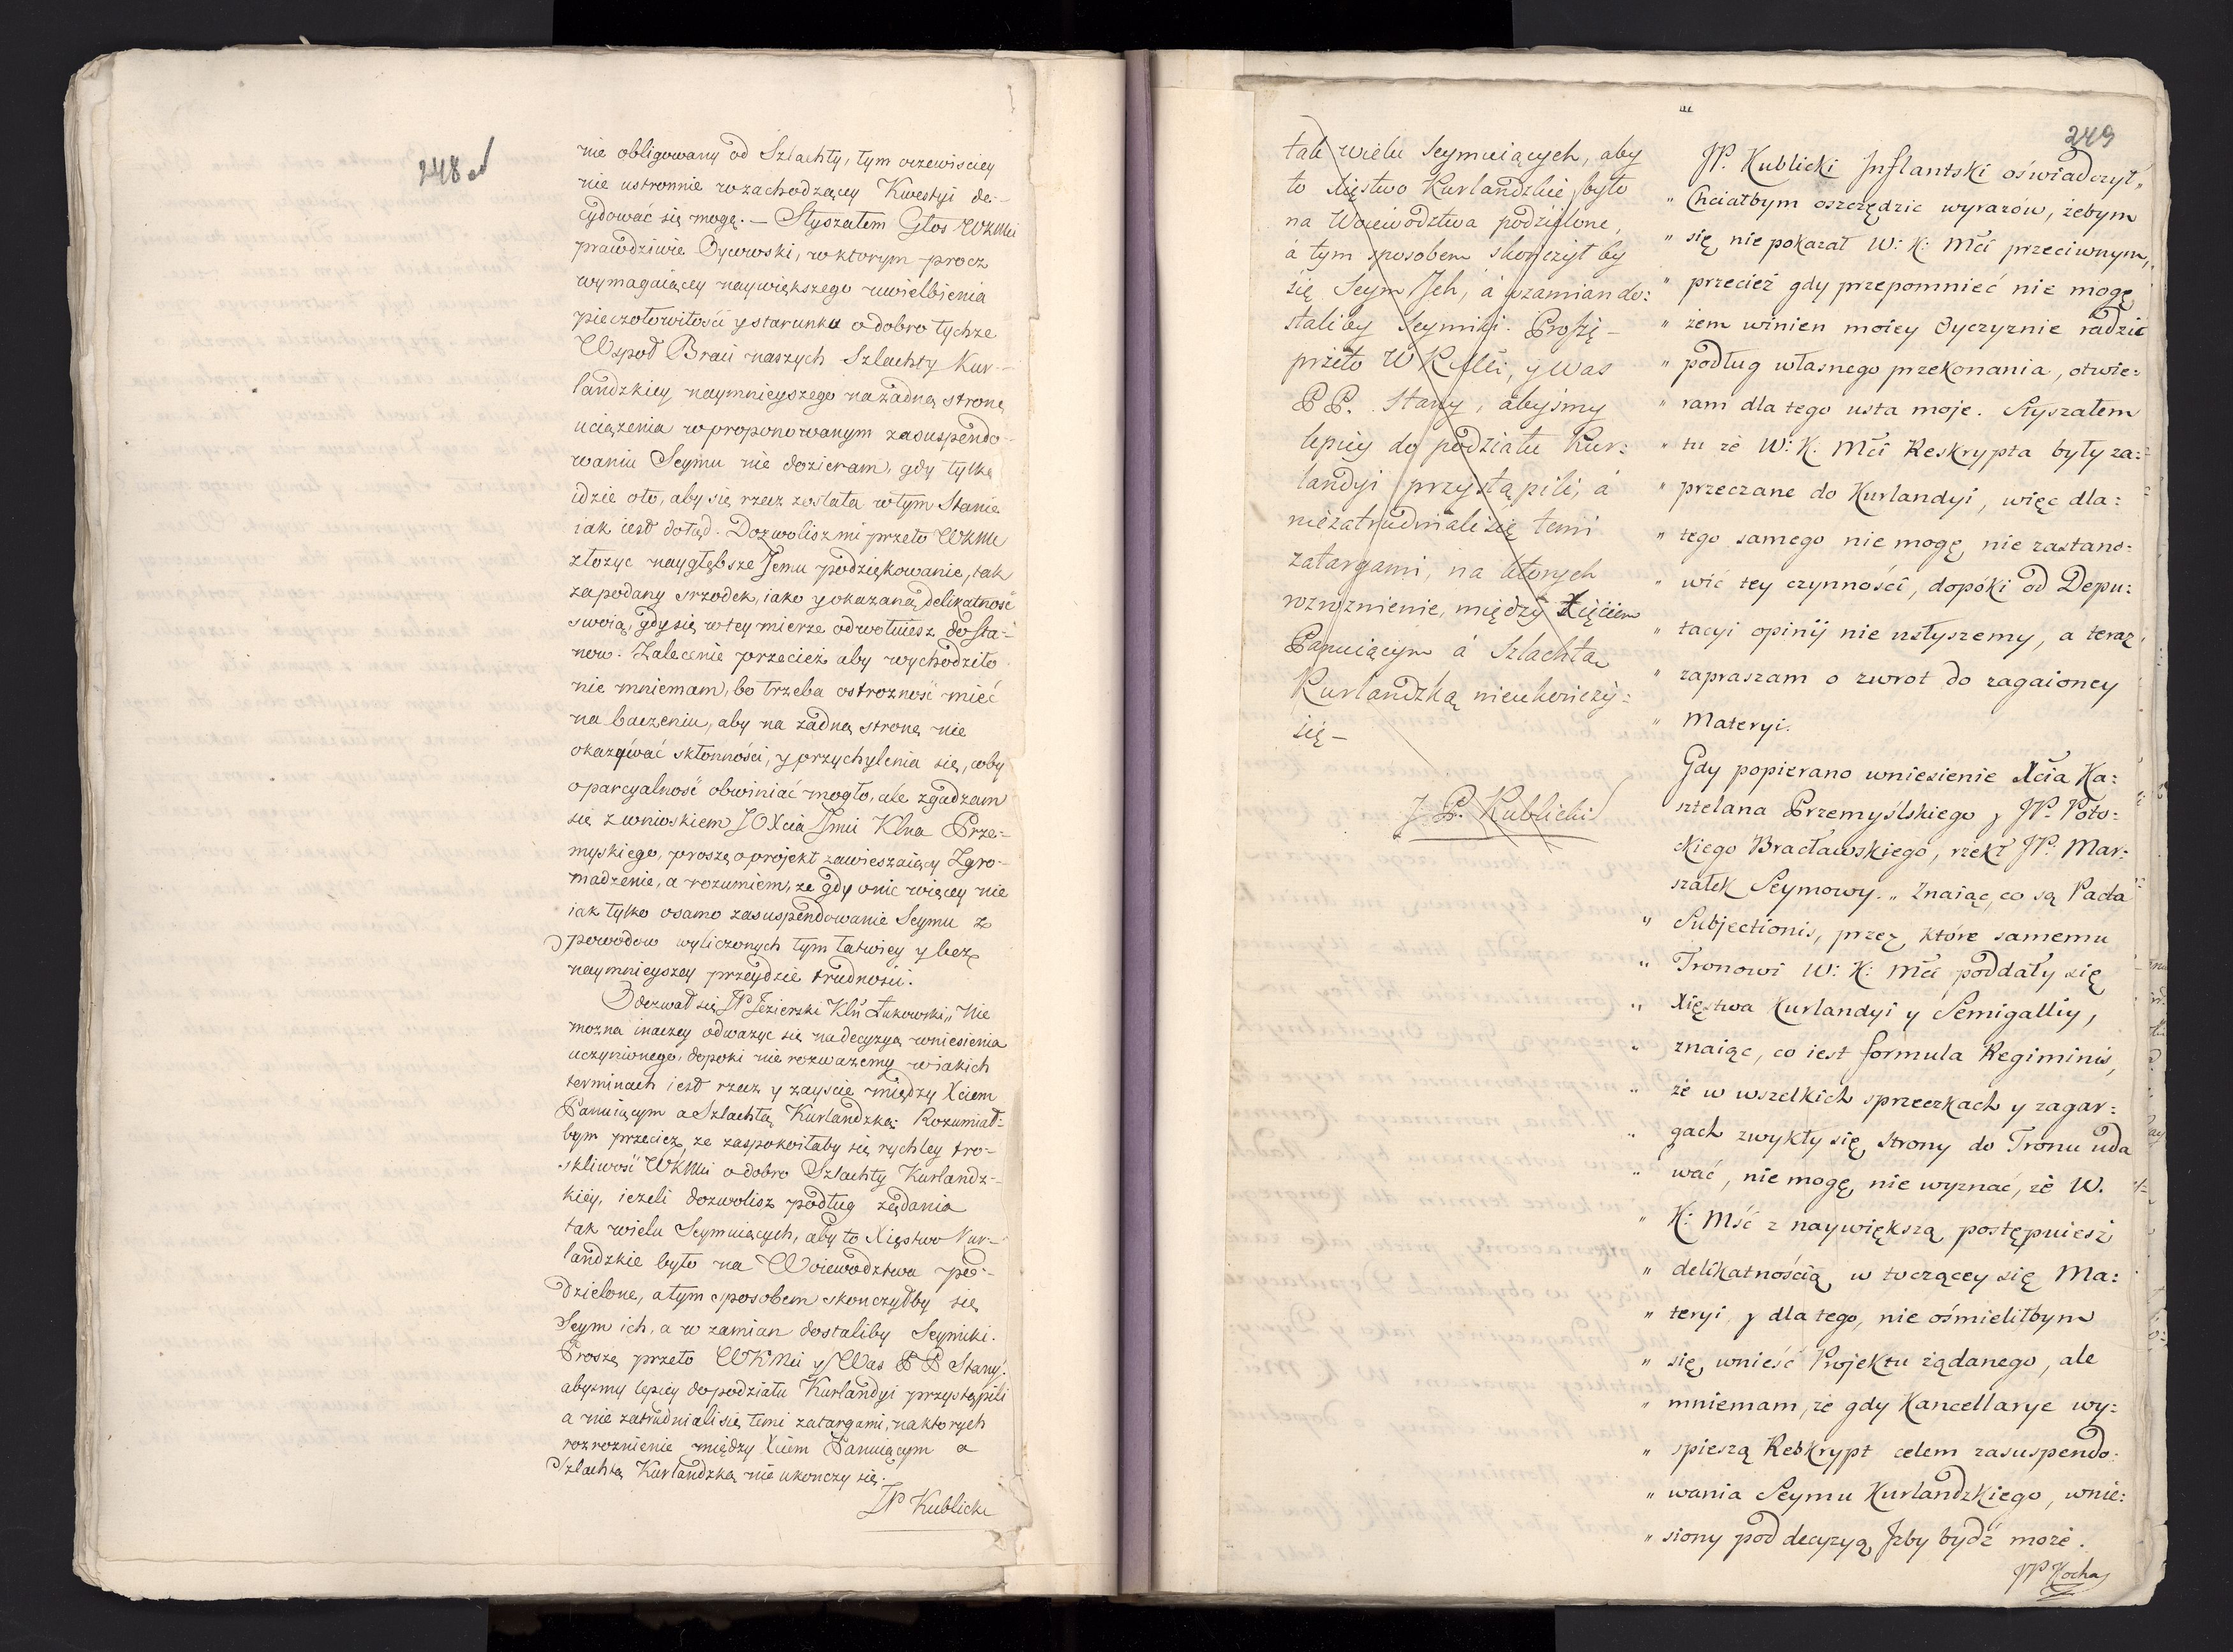 248
nie obligowany od Szlachty, tym oczewisciey
nie ustronnie w zachodzącey Kwestyi de-
cydować się mogę. — Słyszałem Głos WKMci
prawdziwie Oycowski, w ktorym procz
wymagaiącey naywiększego uwielbienia
pieczołowitości y starunku o dobro tychże
Wspoł Braci naszych Szlachty Kur-
landzkiey naymnieyszego na żadną stronę
uciążenia w proponowanym zasuspendo-
waniu Seymu nie dozieram, gdy tylko
idzie oto, aby się rzecz została w tym Stanie
iak iest dotąd. Dozwolisz mi przeto WKMc
złożyc nayglębsze Jemu podziękowanie, tak
za podany srzodek, iako y okazaną delikatność
swoią, gdy się w tey mierze odwołuiesz do Sta-
now. Zalecenie przecież aby wychodziło
nie mniemam, bo trzeba ostrozność mieć
na baczeniu, aby na żadną stronę nie
okazywać skłonności, y przychylenia się, coby
o parcyalność obwiniać mogło, ale zgadzam
się z wnioskiem JOXcia Jmci Klna Prze-
myskiego, proszę o projekt zawieszaiący Zgro-
madzenie, a rozumiem, ze gdy o nic więcey nie
iak tylko o samo zasuspendowanie Seymu z
powodow wyliczonych tym łatwiey y bez
naymnieyszey przeydzie trudności.
Odezwał się JP Jezierski Kln Łukowski „ Nie
mozna inaczey odwazyc się na decyzyą wniesienia
uczynionego, dopoki nie rozwazemy w iakich
terminach iest rzecz y zayscie między Xciem
Panuiącym a Szlachtą Kurlandzką: Rozumiał-
bym przecież, ze zaspokoiłaby się rychley tro-
skliwość WKMci o dobro Szlachty Kurlandz-
kiey, iezeli dozwolisz podług żądania
tak wielu Seymuiących, aby to Xięstwo Kur-
landzkie było na Woiewodztwa po-
dzielone, a tym sposobem skonczyłby się
Seym ich, a w zamian dostaliby Seymiki.
Proszę przeto WKMci y Was PP Stany.
abysmy lepiey do podziału Kurlandyi przystąpili
a nie zatrudniali się temi zatargami, na ktorych
rozroznienie między Xciem Panuiącym a
Szlachtą Kurlandzką nie ukonczy się.
JP Kublicki
tak wielu Seymuiących, aby
to Xięstwo Kurlandzkie było
na Woiewodztwa podzielone,
á tym sposobem skończył by
się Seym Jch, á wzamian do:
staliby Seymiki. Proszę –
przeto W K Mci, y Was
PP. Stany, abysmy
lepiey do podziału Kur:
landyi przystąpili, á
niezatrudniali się temi
zatargami, na ktorych
rozroznienie, między Xięciem
Panuiącym á Szlachtą
Kurlandzką nieukończy:
się –
J P. Kublicki
249
JP. Kublicki Inflantski oświadczył „
„ Chciałbym oszczędzic wyrazów, żebym
„ się nie pokazał W: K: Mci przeciwnym,
„ przecież gdy przepomnieć nie mogę
„ żem winien moiey Oyczyznie radzić
„ podług własnego przekonania, otwie:
„ ram dla tego usta moje. Słyszałem
„ tu że W: K. Mci Reskrypta były za:
„ przeczane do Kurlandyi, więc dla:
„ tego samego nie mogę nie zastano:
„ wić tey czynności, dopóki od Depu:
„ tacyi opinij nie usłyszemy, a teraz
„ zapraszam o zwrot do zagaioney
„ Materyi.
Gdy popierano wniesienie Xcia Ka:
sztelana Przemyślskiego y JP. Poto:
ckiego Bracławskiego, rzekł JP. Mar:
szałek Seymowy. „ Znaiąc, co są Pacta
„ Subjectionis, przez które samemu
„ Tronowi W: K: Mci poddały się
„ Xięstwa Kurlandyi y Semigalliy,
„ znaiąc, co iest formula Regiminis,
„ że w wszelkich sprzeczkach y zagar:
„ gach zwykły się strony do Tronu uda
„ wać, nie mogę nie wyznać, że W.
„ K: Mść z naywiększą postępuiesz
„ delikatnością w toczącey się Ma:
„ teryi, y dla tego, nie ośmieliłbym
„ się wnieść Projektu żądanego, ale
„ mniemam, że gdy Kancellarye wy:
„ spieszą Reskrypt celem zasuspendo:
„ wania Seymu Kurlandzkiego, wnie:
„ siony pod decyzyą Jzby bydź może.
JP Kocha